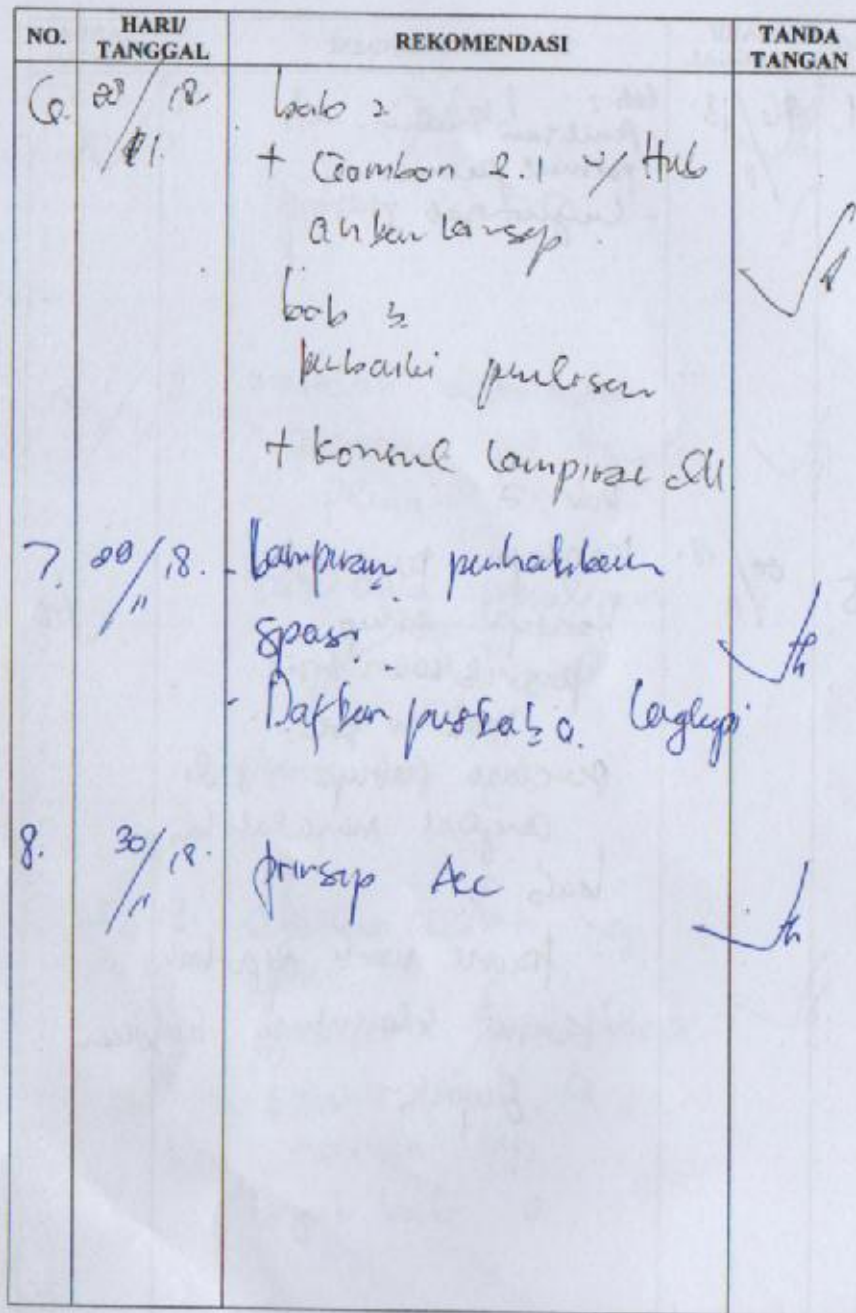 NO. HARI/ TANGGAL REKOMENDASI TANDA TANGAN
6. 28/11 18. bab 2
+ Gambar 2.1 y/ Hub
antar konsep
bab 3
perbaiki penulisan
+ konsul lampiran dll
7. 29/11 18. - Lampiran perhatikan
spasi
- Daftar pustaka lengkapi
8. 30/11 18. prinsip Acc